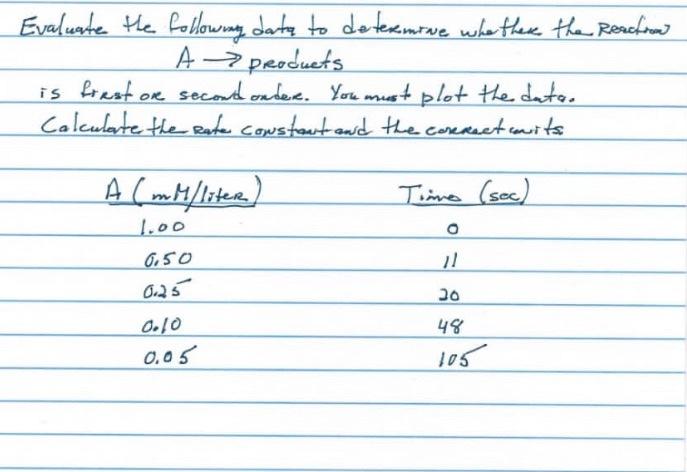 Evaluate the following data to determine whether the Reaction
A → products
is first or second order. You must plot the data.
Calculate the rate constant and the correct units
A (mM/liter) Time (sec)
1.00 0
0.50 11
0.25 20
0.10 48
0.05 105